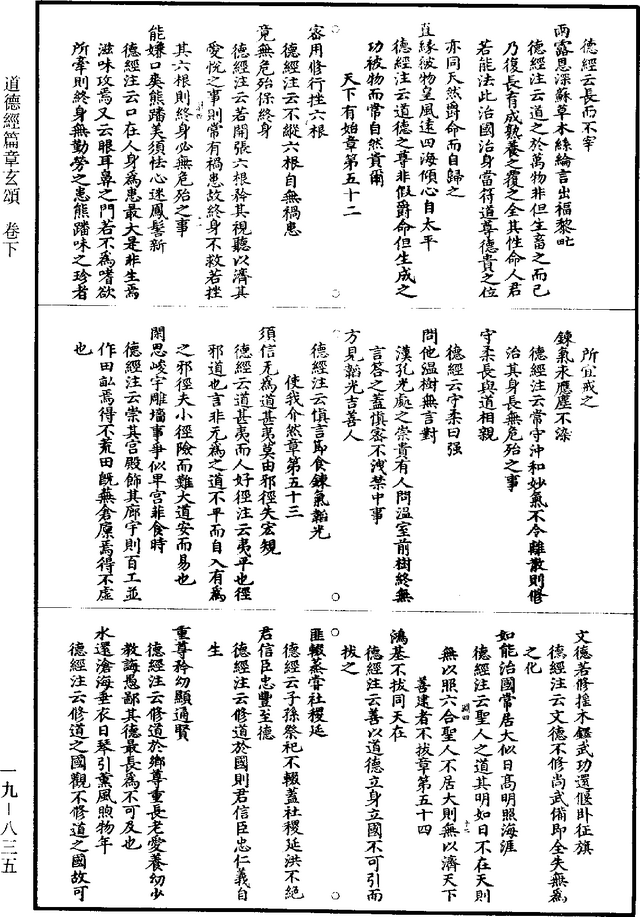 道德經篇章玄頌　卷下
德經云長而不宰
雨露恩深蘇草木絲綸言出福黎甿
德經注云道之於萬物非但生畜之而已
乃復長育成熟養之覆之全其性命人君
若能法此治國治身當符道尊德貴之位
亦同天然爵命而自歸之
直緣被物皇風遠四海傾心自太平
德經注云道德之尊非假爵命但生成之
功被物而常自然貴爾
天下有始章第五十二
密用修行挫六根
德經注云不縱六根自無禍患
竟無危殆保終身
德經注云若開張六根矜其視聽以濟其
愛悅之事則常有禍患故終身不救若挫
其六根則終身必無危殆之事
能嫌口爽熊蹯美須怯心迷鳳髻新
德經注云口在人身為患最大是非生焉
滋味攻焉又云眼耳鼻之門若不為嗜欲
所牽則終身無勤勞之患熊蹯味之珍者
所宜戒之
鍊氣永應塵不染
德經注云常守沖和妙氣不令離散則修
治其身長無危殆之事
守柔長與道相親
德經云守柔曰强
問他温樹無言對
漢孔光處之崇貴有人問温室前樹終無
言荅之蓋慎密不洩禁中事
方見韜光吉善人
德經注云慎言即食鍊氣韜光
使我介然章第五十三
須信无為道甚夷莫由邪徑失宏規
德經云道甚夷而人好徑注云夷平也徑
邪道也言非无為之道不平而自入有為
之邪徑夫小徑險而難大道安而易也
閑思峻宇雕墻事爭似卑宫菲食時
德經注云崇其宮殿飾其廊宇則百工並
作田畝焉得不荒田旣蕪倉廪焉得不虛
也
文德若修摧木鐸武功還偃卧征旗
德經注云文德不修尚武術即全失無為
之化
如能治國常居大似日髙明照海涯
德經注云聖人之道其明如日不在天則
無以照六合聖人不居大則無以濟天下
善建者不拔章第五十四
鴻基不拔同天在
德經注云善以道德立身立國不可引而
拔之
匪輟蒸嘗社稷延
德經云子孫祭祀不輟蓋社稷延洪不絕
君信臣忠豐至德
德經注云修道於國則君信臣忠仁義自
生
重尊矜幼顯通賢
德經注云修道於鄉尊重長老愛養幼少
教誨愚鄙其德最長為不可及也
水還滄海垂衣日琴引薫風煦物年
德經注云修道之國觀不修道之國故可
一九－八三五